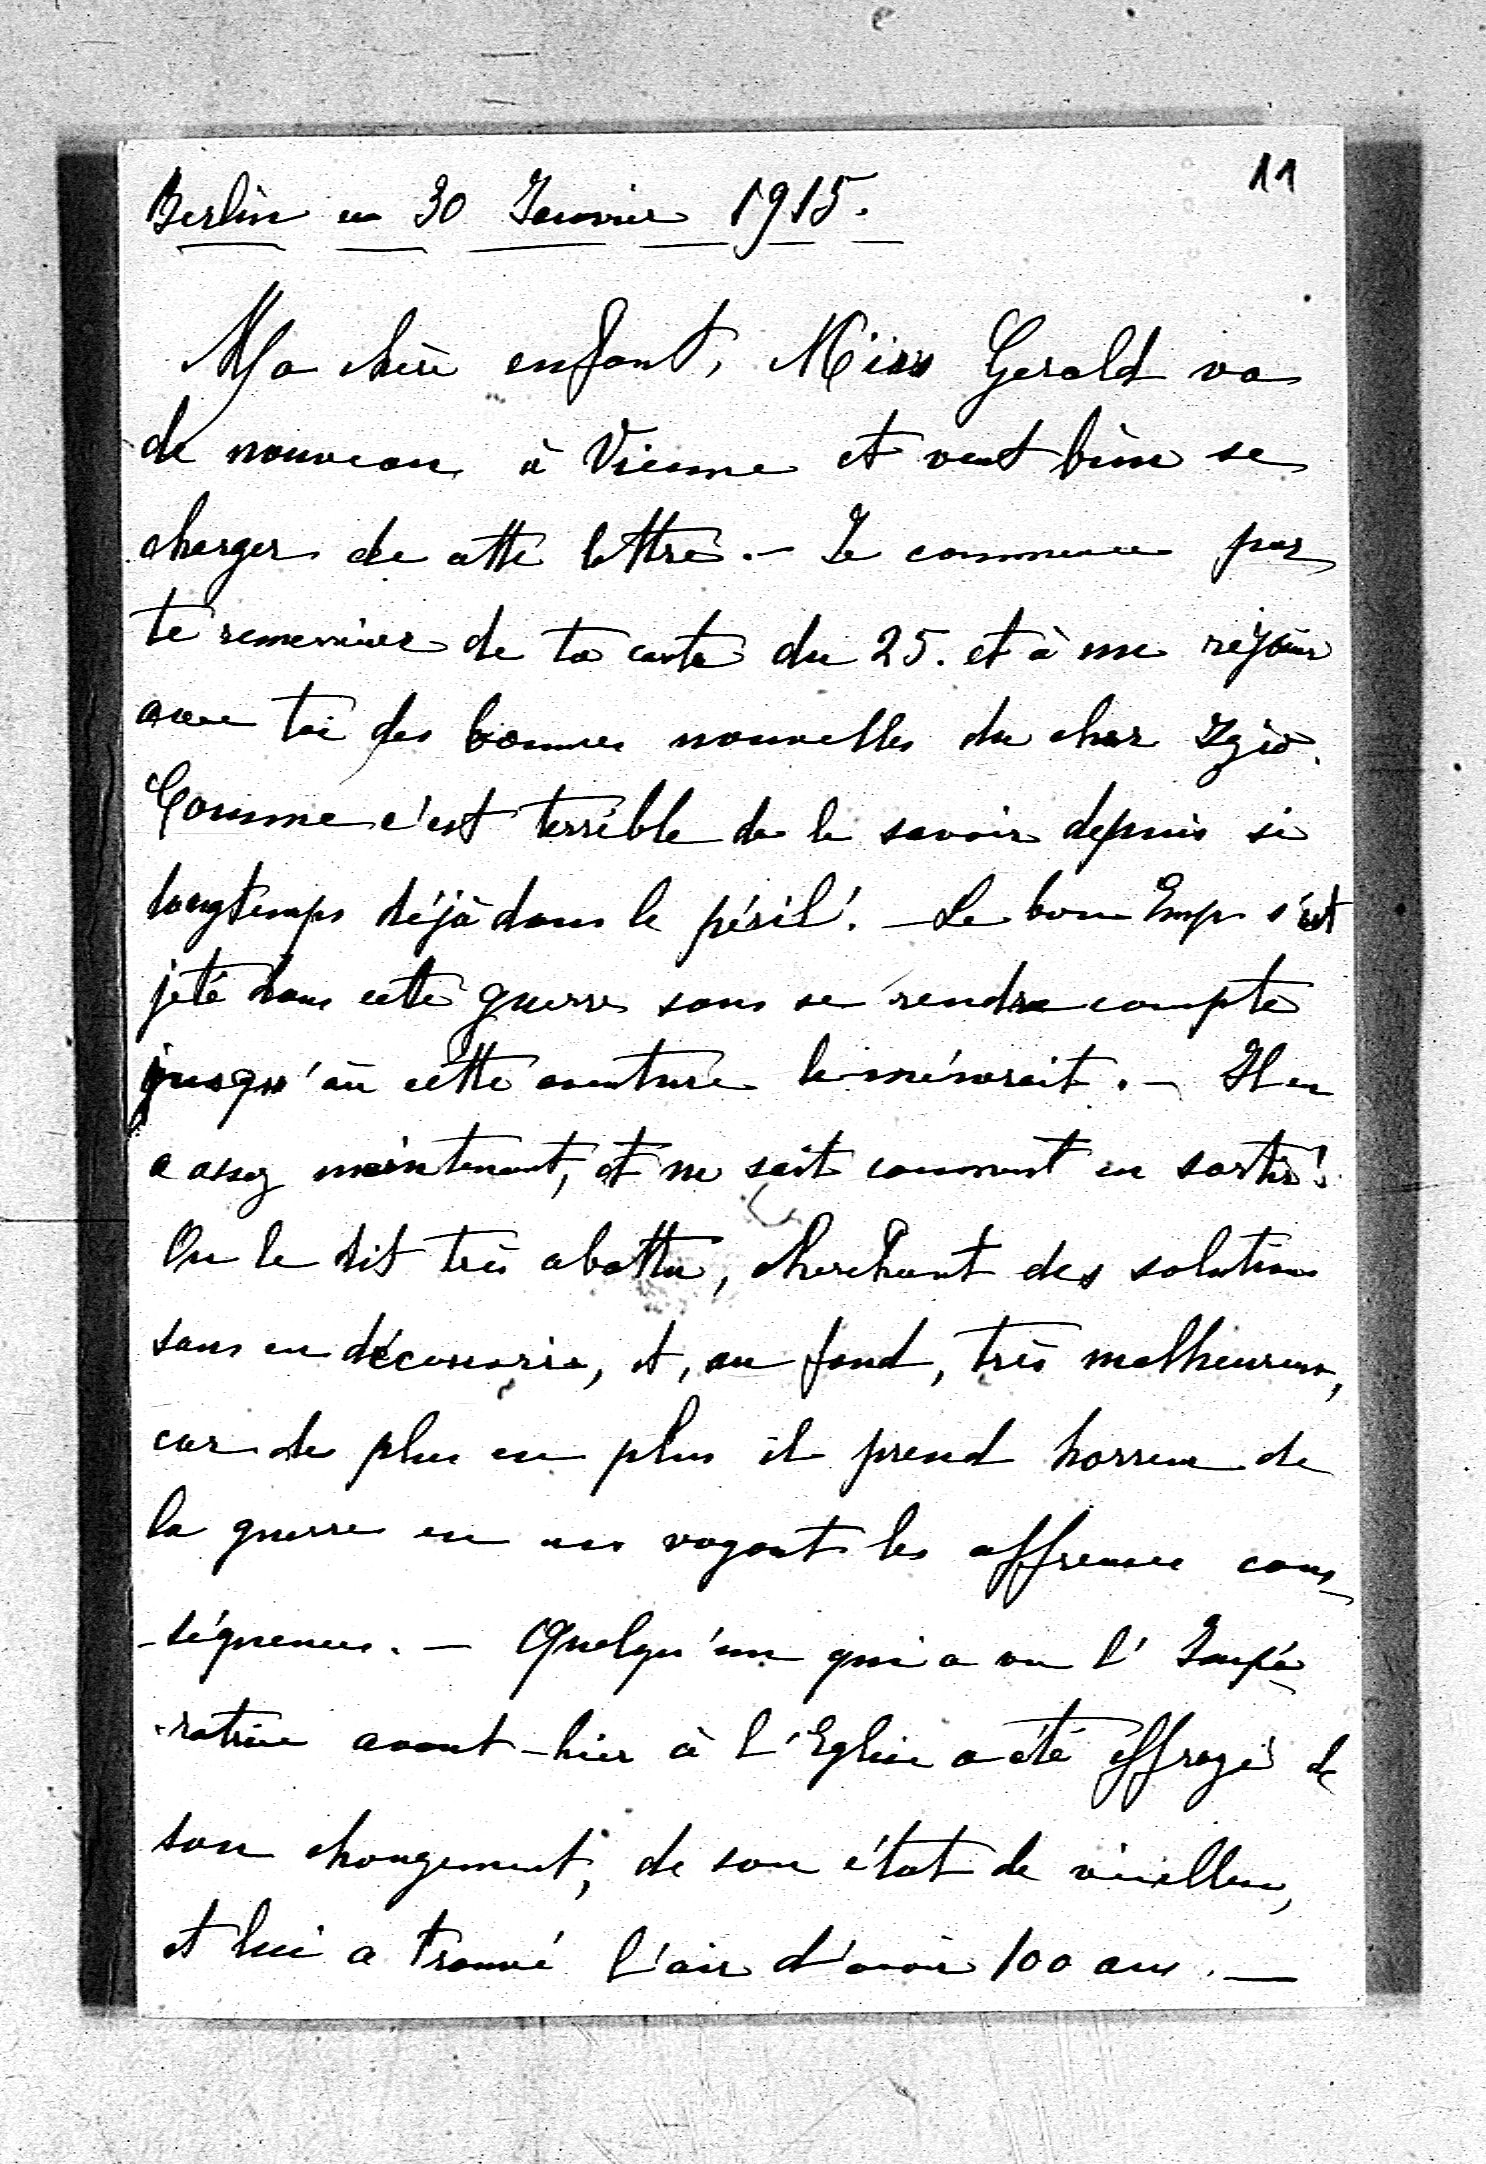 11
Berlin ce 30 Janvier 1915.
Ma chère enfant, Miss Gerald va
de nouveau à Vienne et veut bien se
charger de cette lettre. – Je commence par
te remercier de ta carte du 25. et à me réjouir
avec toi des bonnes nouvelles du cher Zgió.
Comme c'est terrible de le savoir depuis si
longtemps déjà dans le péril! – Le bon Emp s'est
jeté dans cette guerre sans se rendre compte
jusqu'où cette aventure le mènerait. – Il en
a assez maintenant, et ne sait comment en sortir!
On le dit très abattu, cherchant des solutions
sans en découvrir, et, au fond, très malheureux,
car de plus en plus il prend horreur de
la guerre en en voyant les affreuses con-
-séquences. – Quelqu'un qui a vu l'Impé-
-ratrice avant-hier à l'Eglise a été effrayé de
son changement, de son état de vieillesse,
et lui a trouvé l'air d'avoir 100 ans. –